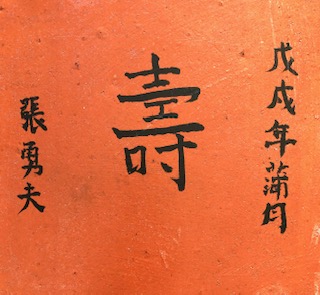 戊戌年蒲月
壽
張勇夫